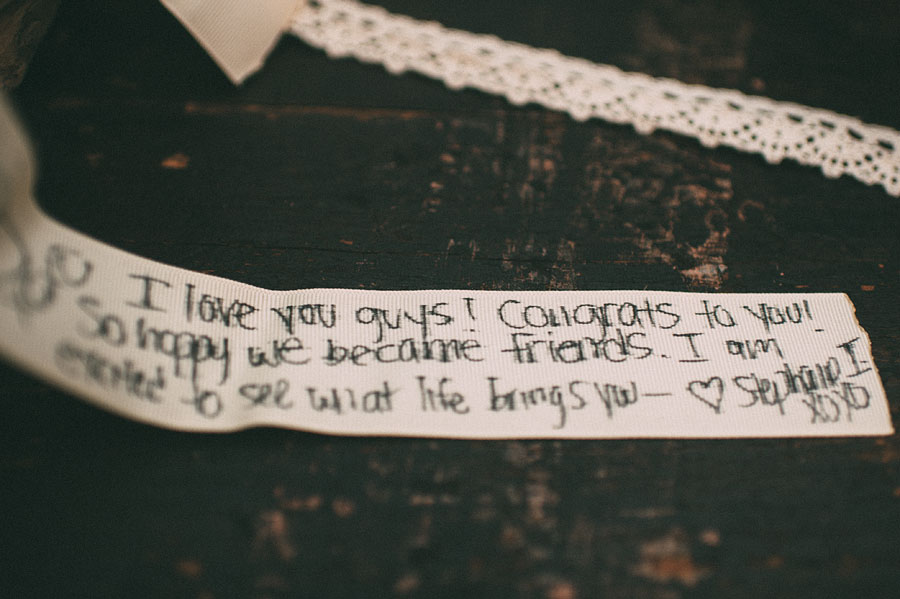 I love you guys! Congrats to you!
So happy we became friends. I am
excited to see what life brings you— ♡ Stephanie I
XOXO